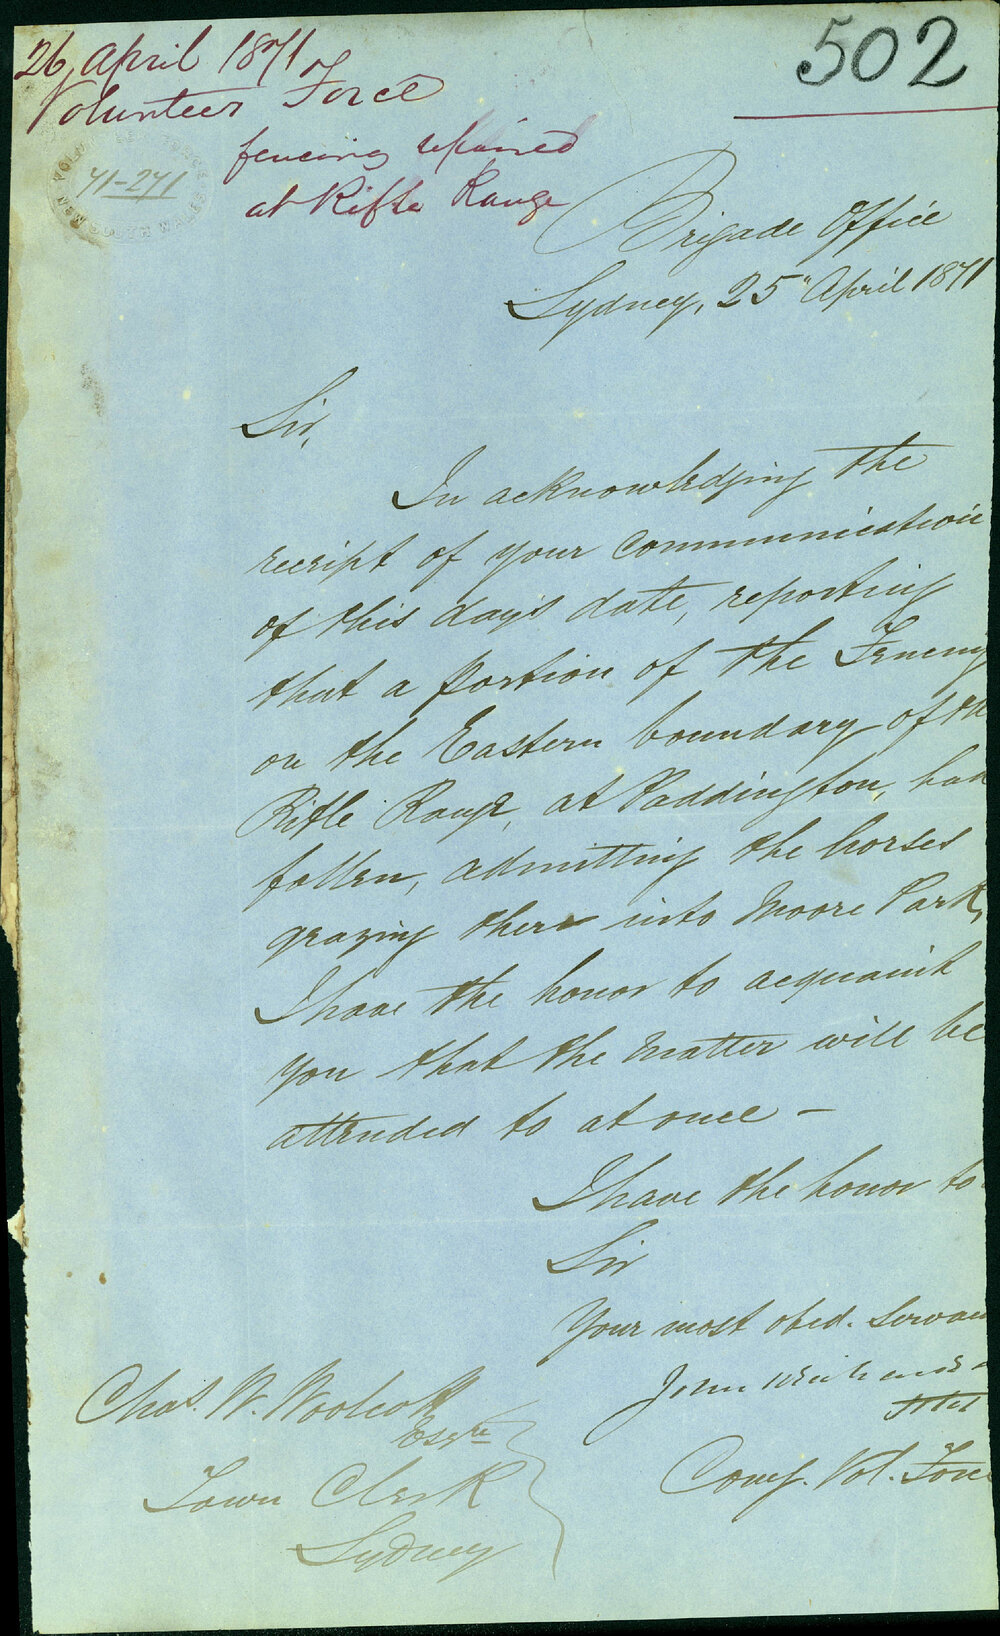 26 April 1871
Volunteer Force
fencing repaired
at Rifle Range
502
71-271
Brigade Office
Sydney, 25" April 1871
Sir,
In acknowledging the
receipt of your Communication
of this days date, reporting
that a portion of the Fencing
on the Eastern boundary of the
Rifle Range, at Paddington, had
fallen, admitting the horses
grazing there into Moore Park,
I have the honor to acquaint
you that the matter will be
attended to at once –
I have the honor to
Sir
Your most obed. Servan
John
Comg. Vol. Force
Chas. W. Woolcott
Esqre
Town Clerk
Sydney